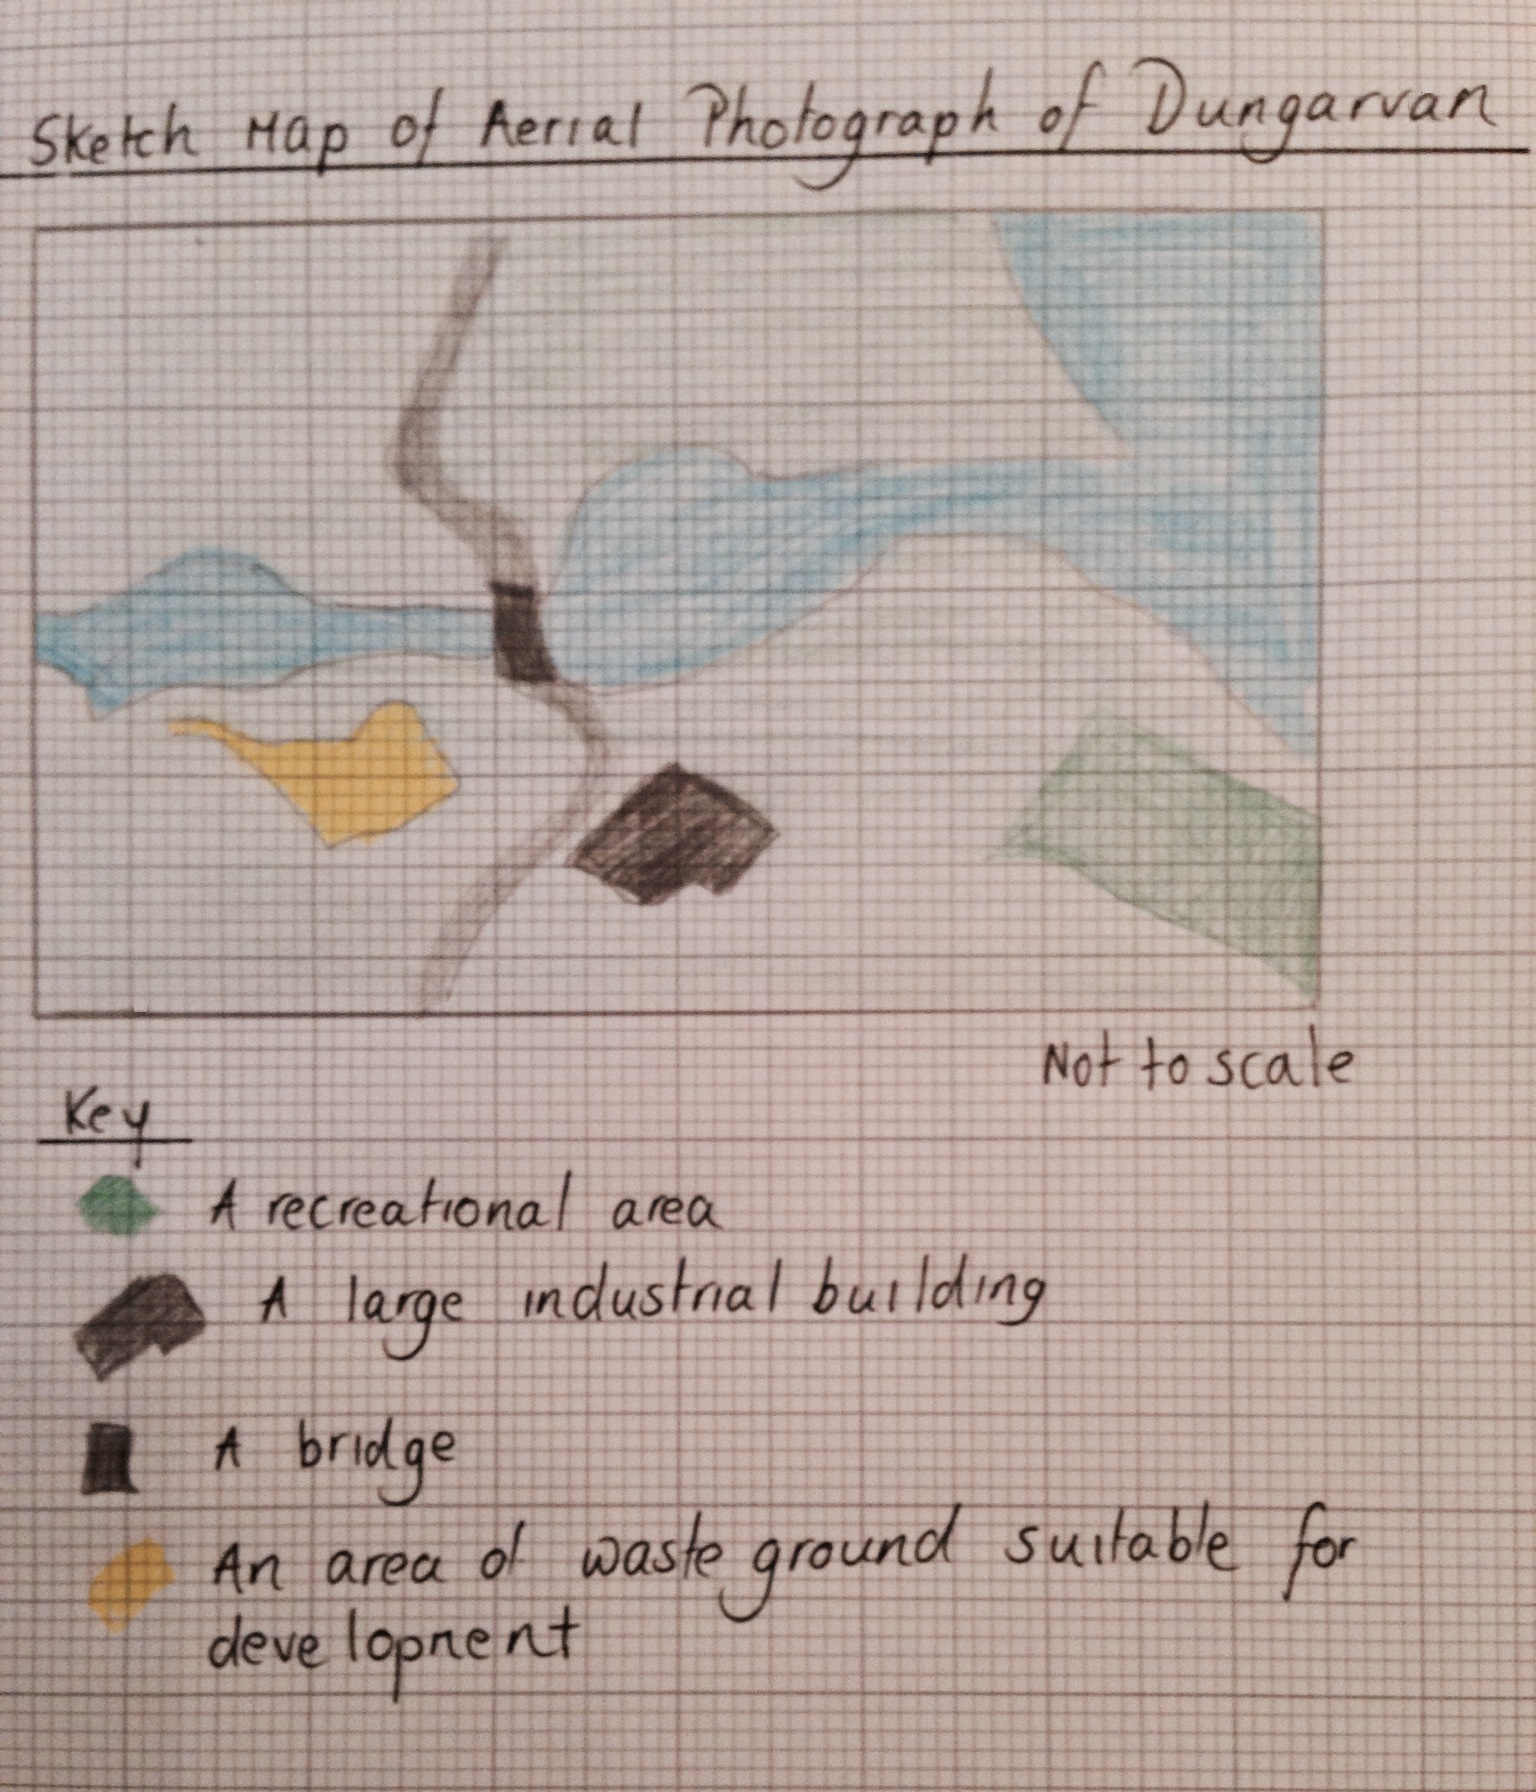 Sketch Map of Aerial Photograph of Dungarvan
Not to scale
Key
A recreational area
A large industrial building
A bridge
An area of waste ground suitable for
development